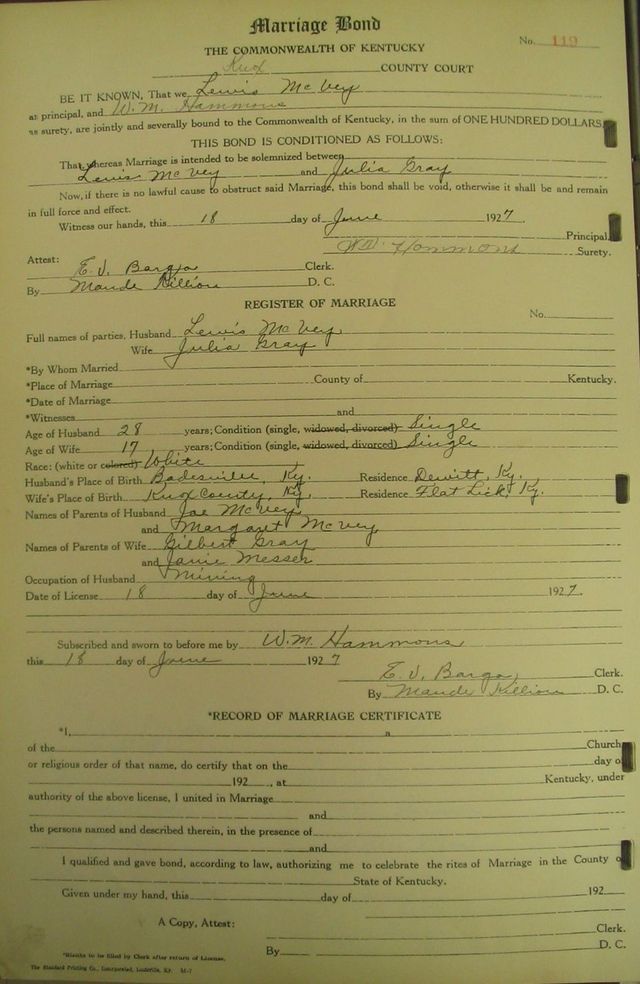 Marriage Bond
No. 119
THE COMMONWEALTH OF KENTUCKY
Knox COUNTY COURT
BE IT KNOWN, That we Lewis McVey
as principal, and W. M. Hammons
as surety, are jointly and severally bound to the Commonwealth of Kentucky, in the sum of ONE HUNDRED DOLLARS.
THIS BOND IS CONDITIONED AS FOLLOWS:
That whereas Marriage is intended to be solemnized between
Lewis McVey and Julia Gray
Now, if there is no lawful cause to obstruct said Marriage, this bond shall be void, otherwise it shall be and remain
in full force and effect.
Witness our hands, this 18 day of June 1927
Principal.
Hammons Surety.
Attest:
E. V. Bargo Clerk.
By Maude Killion D. C.
REGISTER OF MARRIAGE
No.
Full names of parties, Husband Lewis McVey
Wife Julia Gray
*By Whom Married
*Place of Marriage County of Kentucky.
*Date of Marriage
*Witnesses and
Age of Husband 28 years; Condition (single, widowed, divorced) Single
Age of Wife 17 years; Condition (single, widowed, divorced) Single
Race: (white or colored) White
Husband's Place of Birth Ky. Residence Dewitt, Ky.
Wife's Place of Birth Knox County, Ky. Residence Flat Lick, Ky.
Names of Parents of Husband Joe McVey
and Margaret McVey
Names of Parents of Wife Gilbert Gray
and Janie Messer
Occupation of Husband Mining
Date of License 18 day of June 1927.
Subscribed and sworn to before me by W. M. Hammons
this 18 day of June 1927
E. V. Bargo, Clerk.
By Maude Killion D. C.
*RECORD OF MARRIAGE CERTIFICATE
*I, a
of the Church
or religious order of that name, do certify that on the day of
192 , at Kentucky, under
authority of the above license, I united in Marriage
and
the persons named and described therein, in the presence of
and
I qualified and gave bond, according to law, authorizing me to celebrate the rites of Marriage in the County o
State of Kentucky.
Given under my hand, this day of 192
A Copy, Attest:
Clerk.
By D. C.
*Blanks to be filled by Clerk after return of License.
The Standard Printing Co., Incorporated, Louisville, Ky.